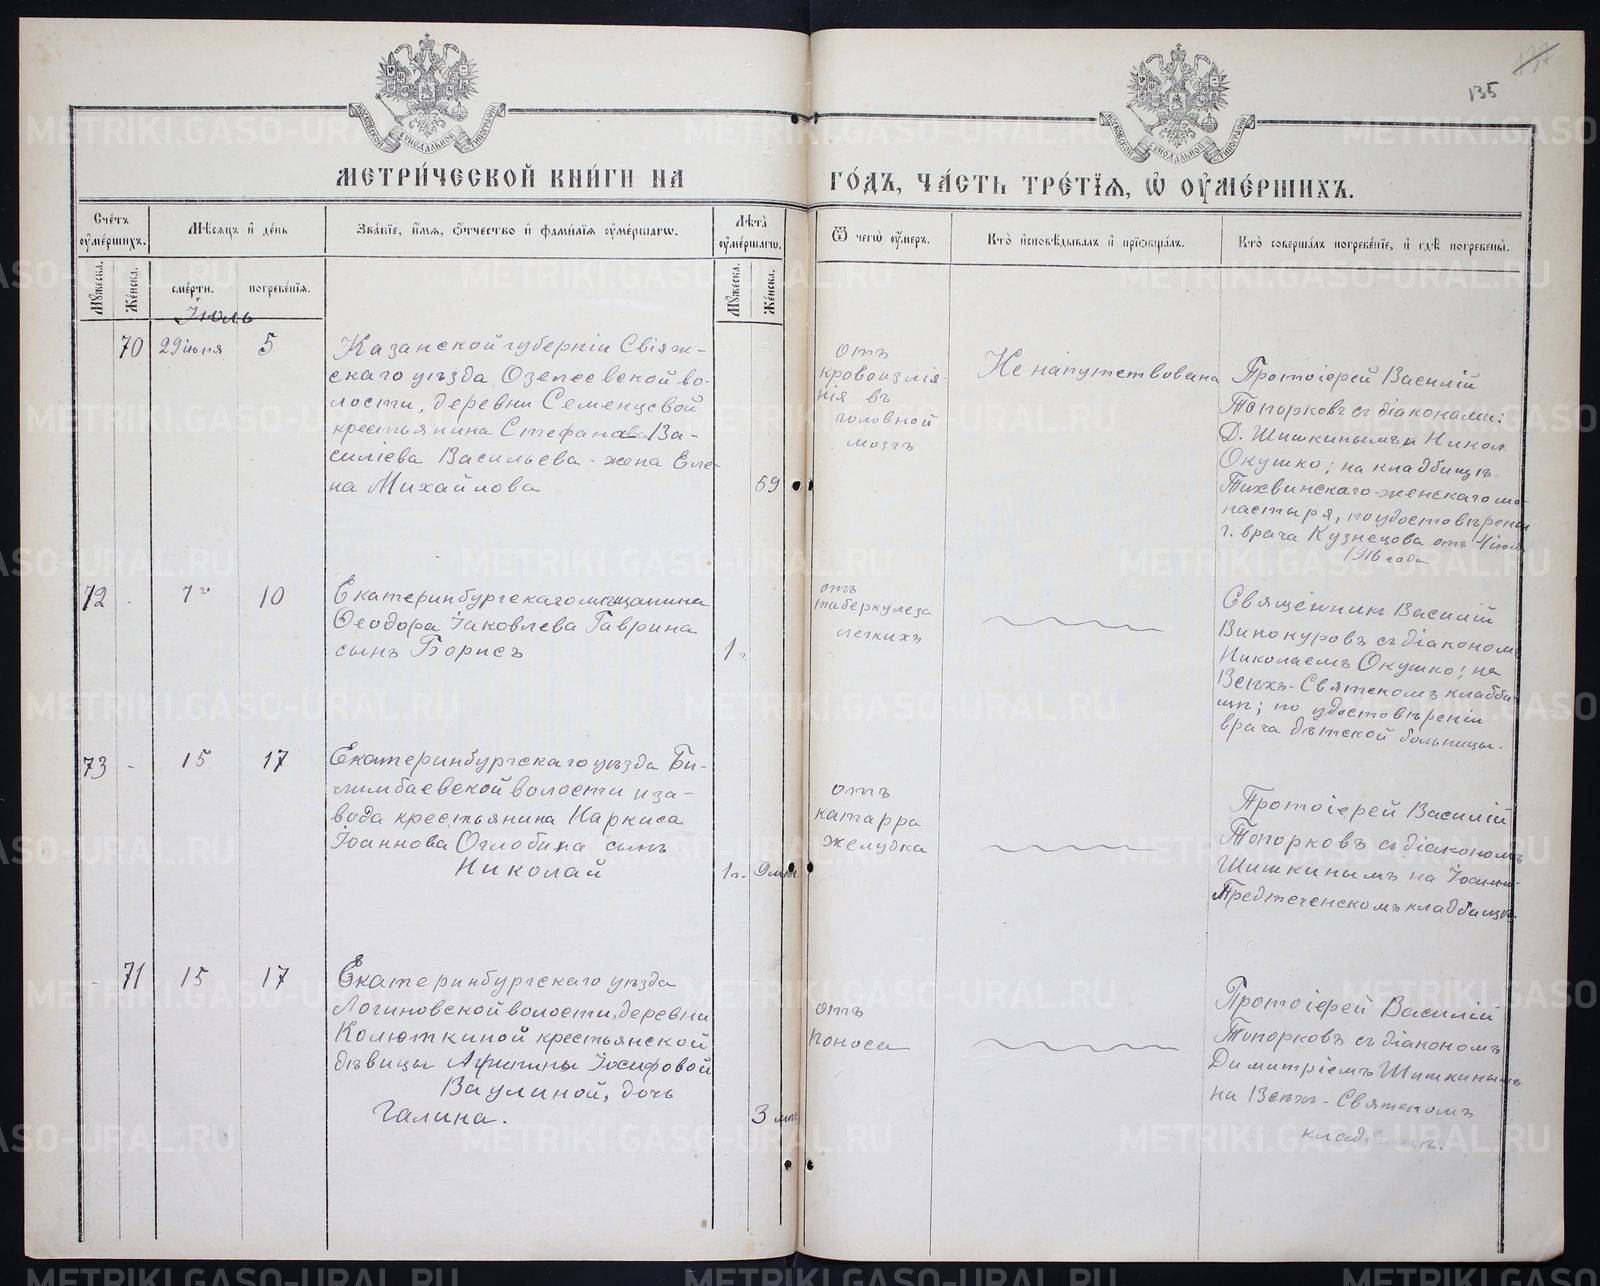 135
МЕТРИЧЕСКОЙ КНИГИ НА ГОДЪ, ЧАСТЬ ТРЕТІЯ, Ѡ ОУМЕРШИХЪ.
Счетъ оумершихъ.
Мѣсяцъ и день
Званіе, имя, отчество и фамилія оумершагѡ.
Лѣта оумершагѡ.
Ѿ чегѡ оумеръ.
Кто исповѣдывалъ и пріобщалъ.
Кто совершалъ погребеніе, и гдѣ погребены.
Мужеска.
Женска.
смерти.
погребенія.
Мужеска.
Женска.
Іюль
70
29 іюня
5
Казанской губерніи Свіяж-
скаго уѣзда, Озелеевской во-
лости, деревни Семенцевой
крестьянина Стефана Ва-
силіева Васильева - жена Еле-
на Михайлова
59
отъ
кровоизлія-
нія въ
головной
мозгъ
Не напутствована
Протоіерей Василій
Топорковъ съ діаконами:
Д. Шишкинымъ и Никол.
Окушко; на кладбищѣ
Тихвинскаго женскаго мо-
настыря, по удостовѣренію
г. врача Кузнецова отъ 4 іюля
1916 года
72
7го
10
Екатеринбургскаго мѣщанина
Ѳеодора Іаковлева Гаврина
сынъ Борисъ
1 г.
отъ
таберкулеза
легкихъ
Священникъ Василій
Винокуровъ съ діакономъ
Николаемъ Окушко; на
Всѣхъ-Святскомъ кладби-
щѣ; по удостовѣренію
врача дѣтской больницы.
73
15
17
Екатеринбургскаго уѣзда Би-
лимбаевской волости и за-
вода крестьянина Наркиса
Іоаннова Оглобина сынъ
Николай
1 г. 9 мѣс
отъ
катарра
желудка
Протоіерей Василій
Топорковъ съ діакономъ
Шишкинымъ на Іоанно-
Предтеченскомъ кладбищѣ.
71
15
17
Екатеринбургскаго уѣзда
Логиновской волости, деревни
Колюткиной крестьянской
дѣвицы Агриппины Іосифовой
Ваулиной, дочь
Галина.
3 мѣс
отъ
поноса
Протоіерей Василій
Топорковъ съ діакономъ
Димитріемъ Шишкинымъ
на Всѣхъ-Святскомъ
кладбищѣ.
METRIKI.GASO-URAL.RU